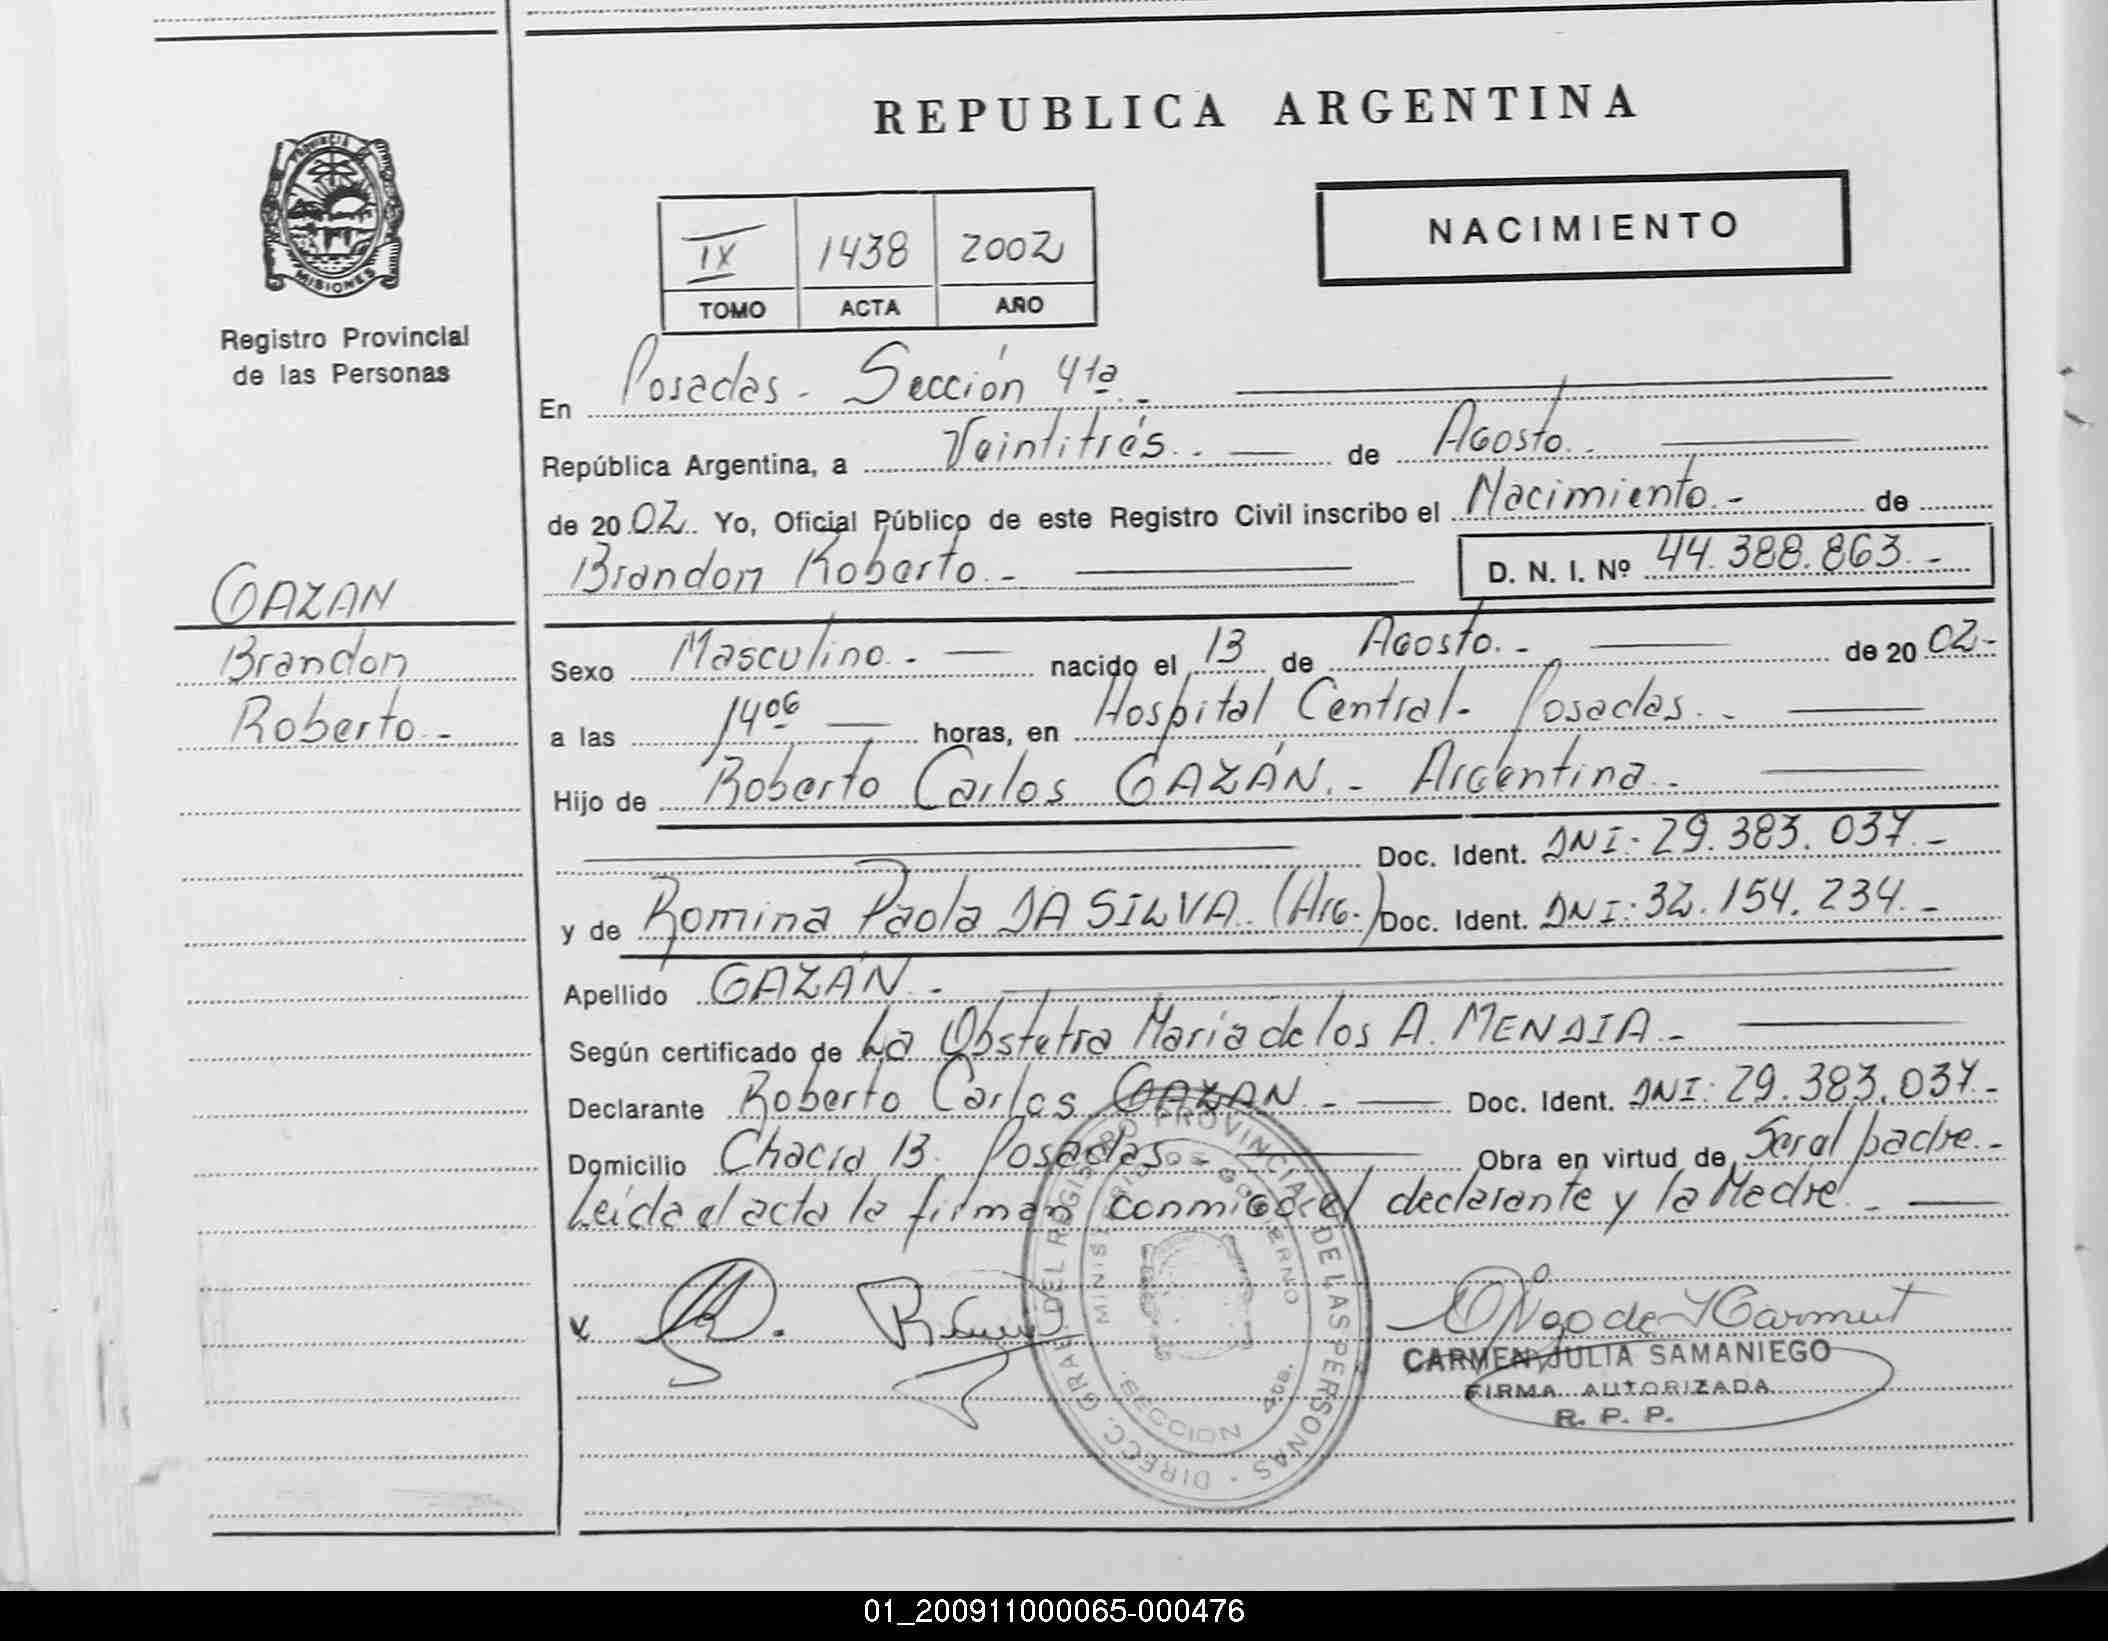 REPUBLICA ARGENTINA
PROVINCIA DE
MISIONES
Registro Provincial
de las Personas
NACIMIENTO
IX 1438 2002
TOMO ACTA AÑO
En Posadas - Sección 4ta -
República Argentina, a Veintitrés. - de Agosto. -
de 2002. Yo, Oficial Público de este Registro Civil inscribo el Nacimiento. - de
Brandon Roberto. - D. N. I. Nº 44.388.863. -
GAZAN
Brandon
Roberto. -
Sexo Masculino. - nacido el 13 de Agosto. - de 2002-
a las 14 06 horas, en Hospital Central - Posadas. -
Hijo de Roberto Carlos GAZÁN. - Argentina. -
Doc. Ident. DNI: 29.383.037. -
y de Romina Paola DA SILVA. (Arg.) Doc. Ident. DNI: 32.154.234. -
Apellido GAZÁN. -
Según certificado de La Obstetra Maria de los A. MENDIA. -
Declarante Roberto Carlos GAZAN. - Doc. Ident. DNI: 29.383.037. -
Domicilio Chacra 13. Posadas. - Obra en virtud de Ser el padre. -
Leída el acta la firman conmigo el declarante y la Madre. -
DIRECC. GRAL. DEL REGISTRO PROVINCIAL DE LAS PERSONAS
MINISTERIO DE GOBIERNO
SECCION
CARMEN JULIA SAMANIEGO
FIRMA AUTORIZADA
R. P. P.
01_200911000065-000476